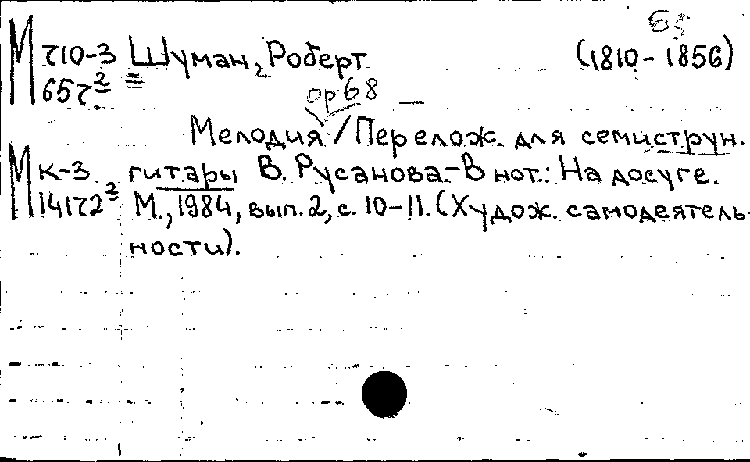 65
М 710-3 Шуман, Роберт (1810-1856)
657²
ор 68
Мелодия / Перелож. для семиструн.
М к-3 гитары В. Русанова.-В нот.: На досуге.
14172² М., 1984, вып. 2, с. 10-11. (Худож. самодеятель-
ности).